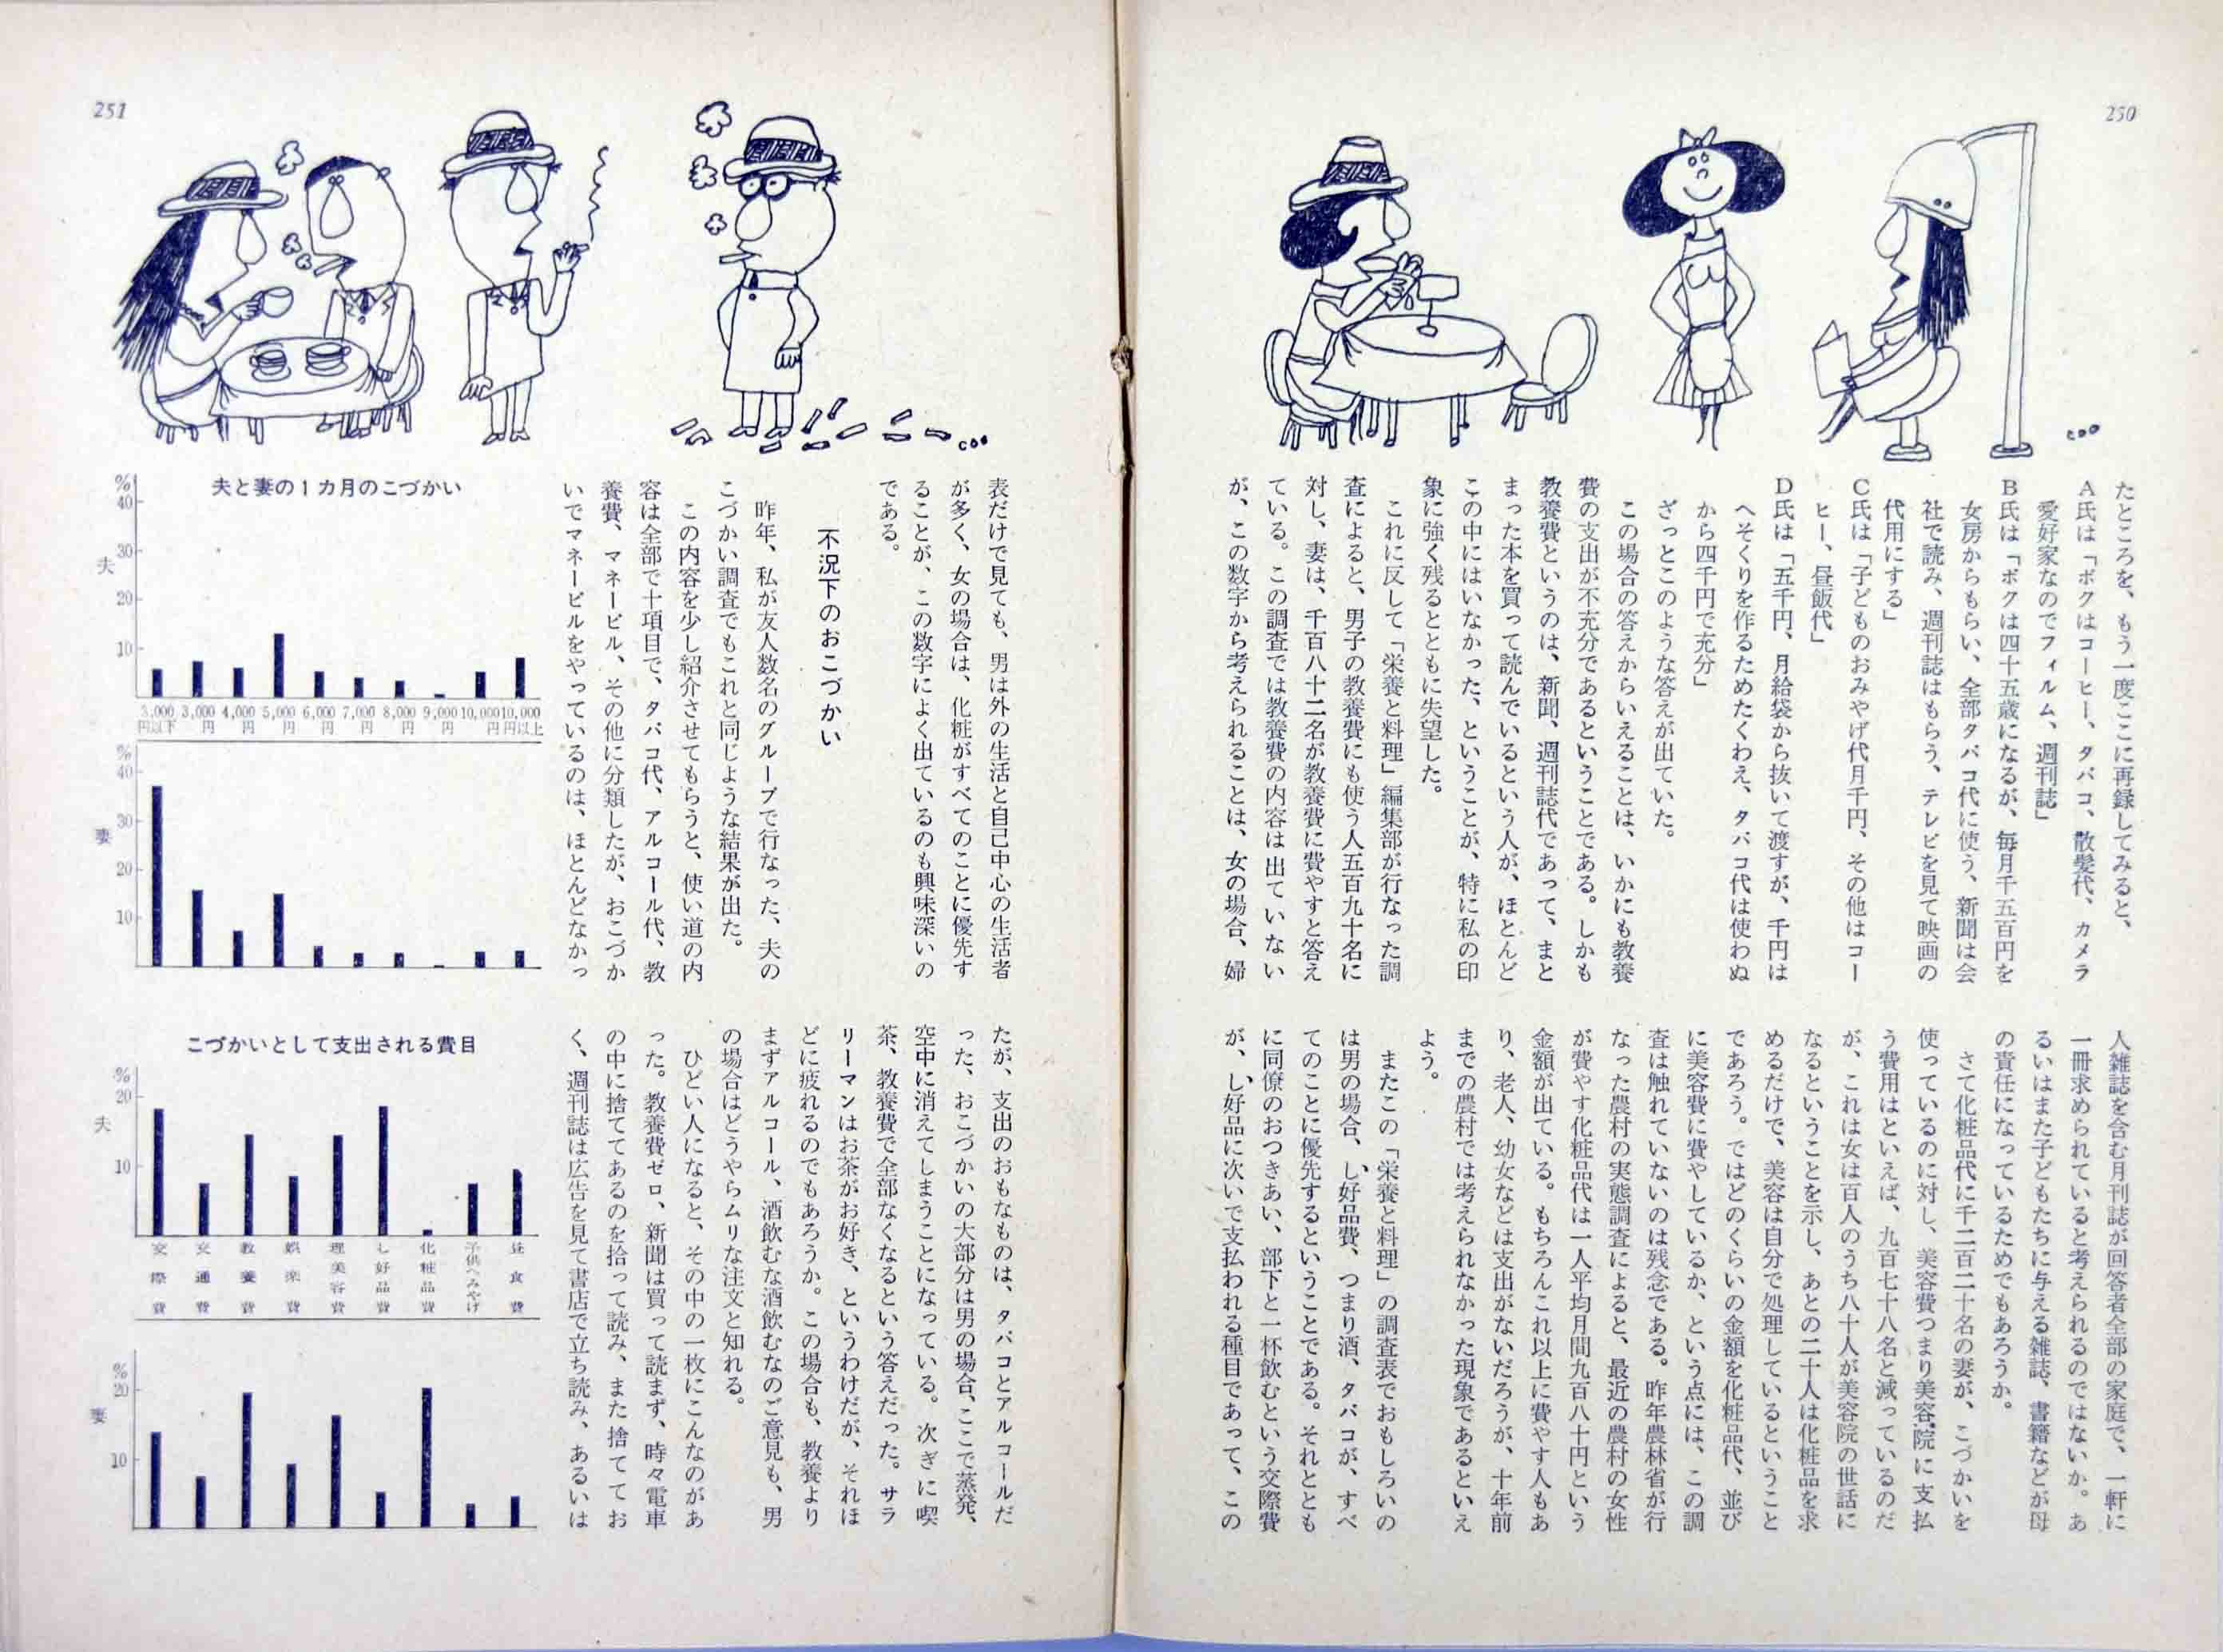 250
たところを、もう一度ここに再録してみると、
A氏は「ボクはコーヒー、タバコ、散髪代、カメラ
愛好家なのでフィルム、週刊誌」
B氏は「ボクは四十五歳になるが、毎月千五百円を
女房からもらい、全部タバコ代に使う、新聞は会
社で読み、週刊誌はもらう、テレビを見て映画の
代用にする」
C氏は「子どものおみやげ代月千円、その他はコー
ヒー、昼飯代」
D氏は「五千円、月給袋から抜いて渡すが、千円は
へそくりを作るためたくわえ、タバコ代は使わぬ
から四千円で充分」
ざっとこのような答えが出ていた。
この場合の答えからいえることは、いかにも教養
費の支出が不充分であるということである。しかも
教養費というのは、新聞、週刊誌代であって、まと
まった本を買って読んでいるという人が、ほとんど
この中にはいなかった、ということが、特に私の印
象に強く残るとともに失望した。
これに反して「栄養と料理」編集部が行なった調
査によると、男子の教養費にも使う人五百九十名に
対し、妻は、千百八十二名が教養費に費やすと答え
ている。この調査では教養費の内容は出ていない
が、この数字から考えられることは、女の場合、婦
人雑誌を含む月刊誌が回答者全部の家庭で、一軒に
一冊求められていると考えられるのではないか。あ
るいはまた子どもたちに与える雑誌、書籍などが母
の責任になっているためでもあろうか。
さて化粧品代に千二百二十名の妻が、こづかいを
使っているのに対し、美容費つまり美容院に支払
う費用はといえば、九百七十八名と減っているのだ
が、これは女は百人のうち八十人が美容院の世話に
なるということを示し、あとの二十人は化粧品を求
めるだけで、美容は自分で処理しているということ
であろう。ではどのくらいの金額を化粧品代、並び
に美容費に費やしているか、という点には、この調
査は触れていないのは残念である。昨年農林省が行
なった農村の実態調査によると、最近の農村の女性
が費やす化粧品代は一人平均月間九百八十円という
金額が出ている。もちろんこれ以上に費やす人もあ
り、老人、幼女などは支出がないだろうが、十年前
までの農村では考えられなかった現象であるといえ
よう。
またこの「栄養と料理」の調査表でおもしろいの
は男の場合、し好品費、つまり酒、タバコが、すべ
てのことに優先するということである。それととも
に同僚のおつきあい、部下と一杯飲むという交際費
が、し好品に次いで支払われる種目であって、この
251
表だけで見ても、男は外の生活と自己中心の生活者
が多く、女の場合は、化粧がすべてのことに優先す
ることが、この数字によく出ているのも興味深いの
である。
不況下のおこづかい
昨年、私が友人数名のグループで行なった、夫の
こづかい調査でもこれと同じような結果が出た。
この内容を少し紹介させてもらうと、使い道の内
容は全部で十項目で、タバコ代、アルコール代、教
養費、マネービル、その他に分類したが、おこづか
いでマネービルをやっているのは、ほとんどなかっ
たが、支出のおもなものは、タバコとアルコールだ
った、おこづかいの大部分は男の場合、ここで蒸発、
空中に消えてしまうことになっている。次ぎに喫
茶、教養費で全部なくなるという答えだった。サラ
リーマンはお茶がお好き、というわけだが、それほ
どに疲れるのでもあろうか。この場合も、教養より
まずアルコール、酒飲むな酒飲むなのご意見も、男
の場合はどうやらムリな注文と知れる。
ひどい人になると、その中の一枚にこんなのがあ
った。教養費ゼロ、新聞は買って読まず、時々電車
の中に捨ててあるのを拾って読み、また捨ててお
く、週刊誌は広告を見て書店で立ち読み、あるいは
夫と妻の1カ月のこづかい
%
40
30
20
10
夫
3,000円以下
3,000円
4,000円
5,000円
6,000円
7,000円
8,000円
9,000円
10,000円
10,000円以上
%
40
30
20
10
妻
こづかいとして支出される費目
%
20
10
夫
交際費
交通費
教養費
娯楽費
理美容費
し好品費
化粧品費
子供へみやげ
昼食費
%
20
10
妻